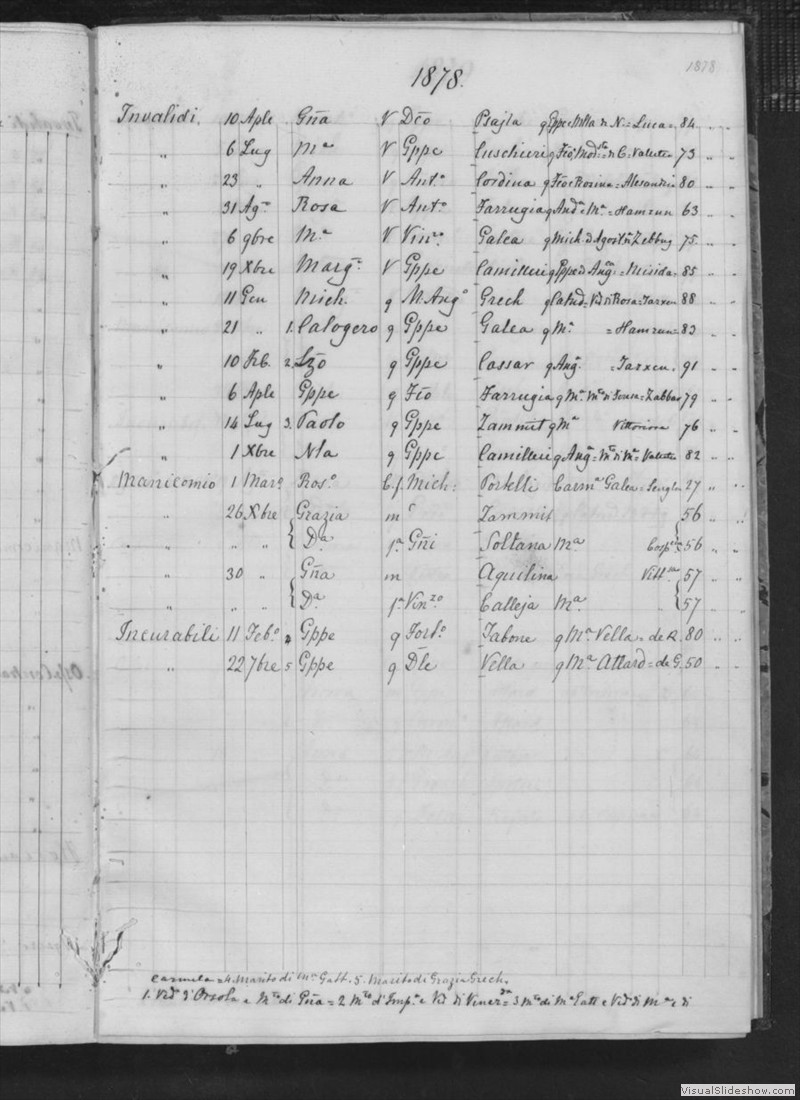 1878
1878.
Invalidi. 10 Aple Gña V Dco Psaila q Gppe e Milla di N = Luca = 84 " "
" 6 Lug Ma V Gppe Cuschieri q Fco = Valletta 73 " "
" 23 " Anna V Anto Cordina q Fco e Rosina = Alesandria 80 " "
" 31 Ago Rosa V Anto Farrugia q Anda e Ma = Hamrun 63 " "
" 6 9bre Ma V Vinzo Galea q Mich. d'Agosta Zebbug 75 " "
" 19 Xbre Marga V Gppe Camilleri q Gppe d'Anga = Misida = 85 " "
" 11 Gen Mich. q M. Ango Grech q Catnd = Vid di Rosa = Tarxen 88 " "
" 21 " 1. Calogero q Gppe Galea q Ma = Hamrun = 83 " "
" 10 Feb. 2. Lzo q Gppe Cassar q Anga = Tarxen. 91 " "
" 6 Aple Gppe q Fco Farrugia q Ma Mto di Zabbar 79 " "
" 14 Lug 3. Paolo q Gppe Zammit q Ma Vittoriosa 76 " "
" 1 Xbre Nla q Gppe Camilleri q Anga = Mto di Ma = Valletta 82 " "
Manicomio 1 Maro Roso C. f. Mich: Portelli Carma Galea = Senglea 27 " "
" 26 Xbre Grazia m Zammit 56 " "
" " " Da fa Gñi Soltana Ma Cospa 56 " "
" 30 " Gña m Aquilina Vitta 57 " "
" " " Da fa Vinzo Calleja Ma 57 " "
Incurabili 11 Febo 4 Gppe q Forto Tabone q Ma Vella = de R. 80 " "
" 22 7bre 5 Gppe q Dle Vella q Ma Attard = de G. 50 " "
Carmela = 4. Marito di Ma Gatt. 5. Marito di Grazia Grech.
1. Vedo d'Orsola e Mto di Gña = 2 Mto d'Impa e Vid di Vener da = 3 Mto di Ma Gatt e Vido di Ma e di
VisualSlideshow.com